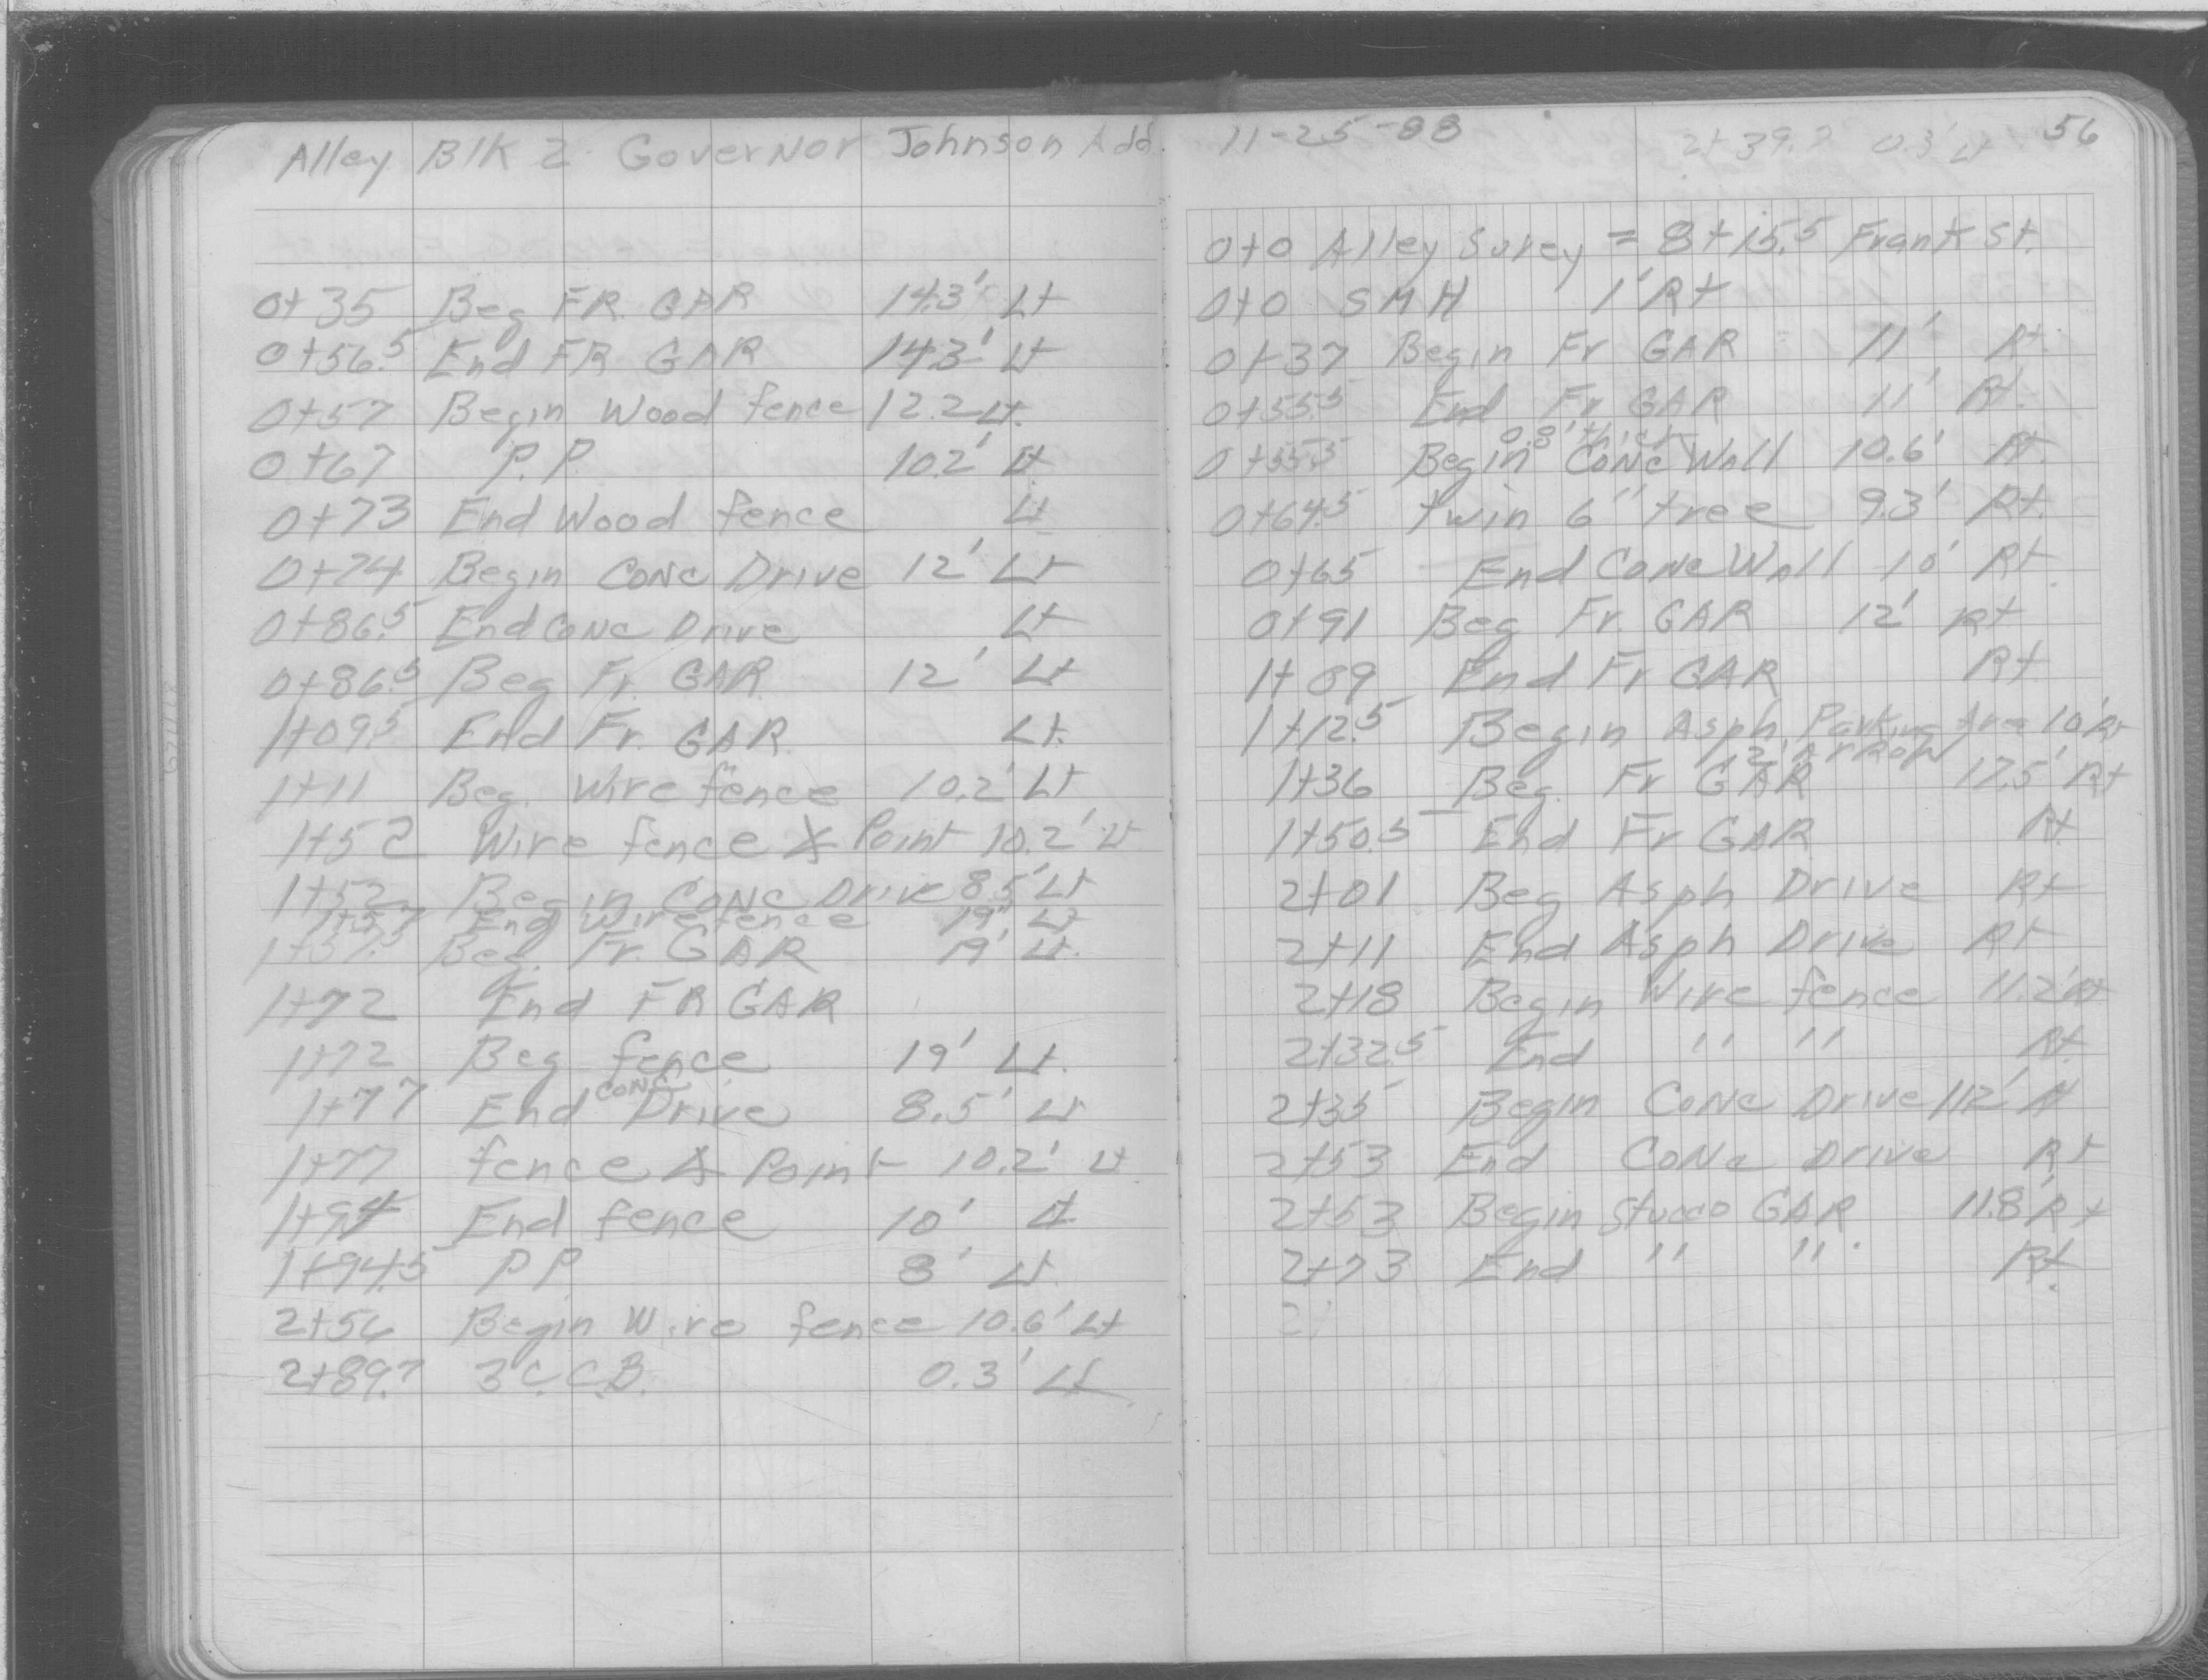 Alley Blk 2 Governor Johnson Add.
0+35 Beg FR. GAR 14.3' Lt
0+56.5 End FR GAR 14.3' Lt
0+57 Begin Wood fence 12.2 Lt.
0+67 P.P. 10.2' Lt
0+73 End Wood fence Lt
0+74 Begin Conc Drive 12' Lt
0+86.5 End Conc Drive Lt
0+86.5 Beg Fr. GAR 12' Lt
1+09.5 End Fr. GAR Lt.
1+11 Beg. Wire fence 10.2' Lt
1+52 Wire fence ∡ Point 10.2' Lt
1+52 Begin Conc Drive 8.5' Lt
1+57 End Wire fence 19' Lt
1+57.5 Beg. Fr. GAR 19' Lt.
1+72 End FR GAR
1+72 Beg fence 19' Lt.
1+77 End Conc Drive 8.5' Lt
1+77 fence ∡ Point 10.2' Lt
1+94 End fence 10' Lt
1+94.5 P.P. 8' Lt.
2+56 Begin Wire fence 10.6' Lt
2+89.7 3 C.C.B. 0.3' Lt
11-25-88 2+39.7 0.3' Lt 56
0+0 Alley Survey = 8+15.5 Frank St.
0+0 SMH 1' Rt
0+37 Begin Fr GAR 11' Rt.
0+55.5 End Fr GAR 11' Rt.
0.8' thick
0+55.5 Begin Conc Wall 10.6' Rt.
0+64.5 twin 6" tree 9.3' Rt.
0+65 End Conc Wall 10' Rt.
0+91 Beg Fr. GAR 12' Rt
1+09 End Fr GAR Rt
1+12.5 Begin Asph. Parking Area 10' Rt
1+36 Beg. Fr GAR 17.5' Rt
1+50.5 End Fr GAR Rt.
2+01 Beg Asph Drive Rt
2+11 End Asph Drive Rt
2+18 Begin Wire fence 11.2' Rt
2+32.5 End " " Rt.
2+35 Begin Conc Drive 11.2' Rt
2+53 End Conc Drive Rt
2+53 Begin Stucco GAR 11.8' Rt
2+73 End " " Rt.